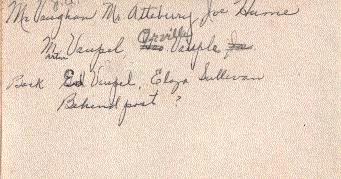 Mr Vaughan Mr Attebury Joe Hume
Mr Veupel Orville Veuple
Back Ed Veupel, Elza Sullivan
Behind post ?